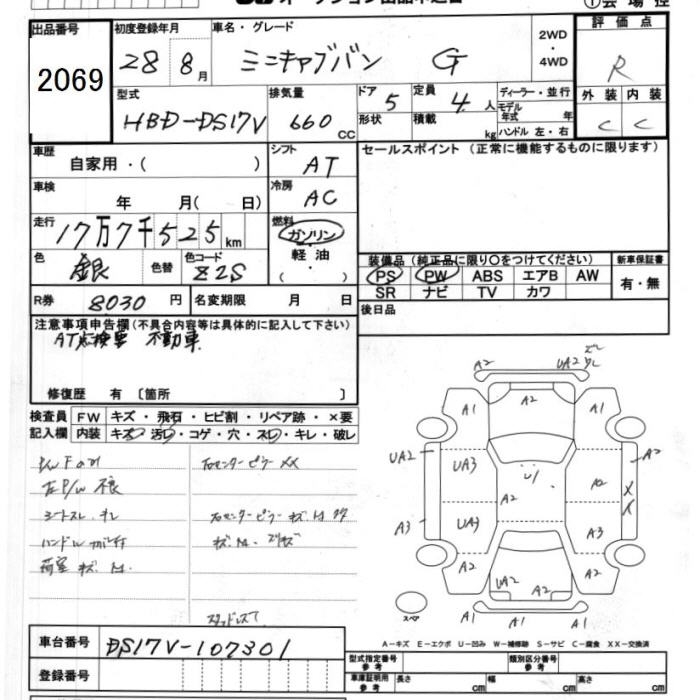 出品番号 初度登録年月 車名・グレード 2WD・4WD 評価点
2069 28 8月 ミニキャブバン G R
型式 排気量 ドア 5 定員 4人 ディーラー・並行 外装 内装
HBD-DS17V 660cc 形状 積載 kg モデル年式 年 C C
ハンドル 左・右
車歴 自家用・( ) シフト AT セールスポイント (正常に機能するものに限ります)
車検 年 月( 日) 冷房 AC
走行 17万7千525km 燃料 ガソリン
軽油
( )
色 銀 色替 色コード Z2S
装備品 (純正品に限り〇をつけてください) 新車保証書
PS PW ABS エアB AW 有・無
SR ナビ TV カワ
R券 8030円 名変期限 月 日 後日品
注意事項申告欄(不具合内容等は具体的に記入して下さい)
AT点検要 不動車
修復歴 有 〔箇所 〕
検査員 FW キズ・飛石・ヒビ割・リペア跡・×要
記入欄 内装 キズ・汚れ・コゲ・穴・スレ・キレ・破レ
右センターピラー XX
左P/W 不良
シートスレ
荷室 キズ. M.
A2 UA2
A1 A2 A1
UA2 UA3 A2 A2
A2 XX
A3 UA3 A3
A2 UA2 A2 A2
A1 A2
スペア
車台番号 DS17V-107301
A-キズ E-エクボ U-凹み W-補修跡 S-サビ C-腐食 XX-交換済
登録番号
型式指定番号 参考 類別区分番号 参考
車庫証明用 参考 長さ cm 幅 cm 高さ cm